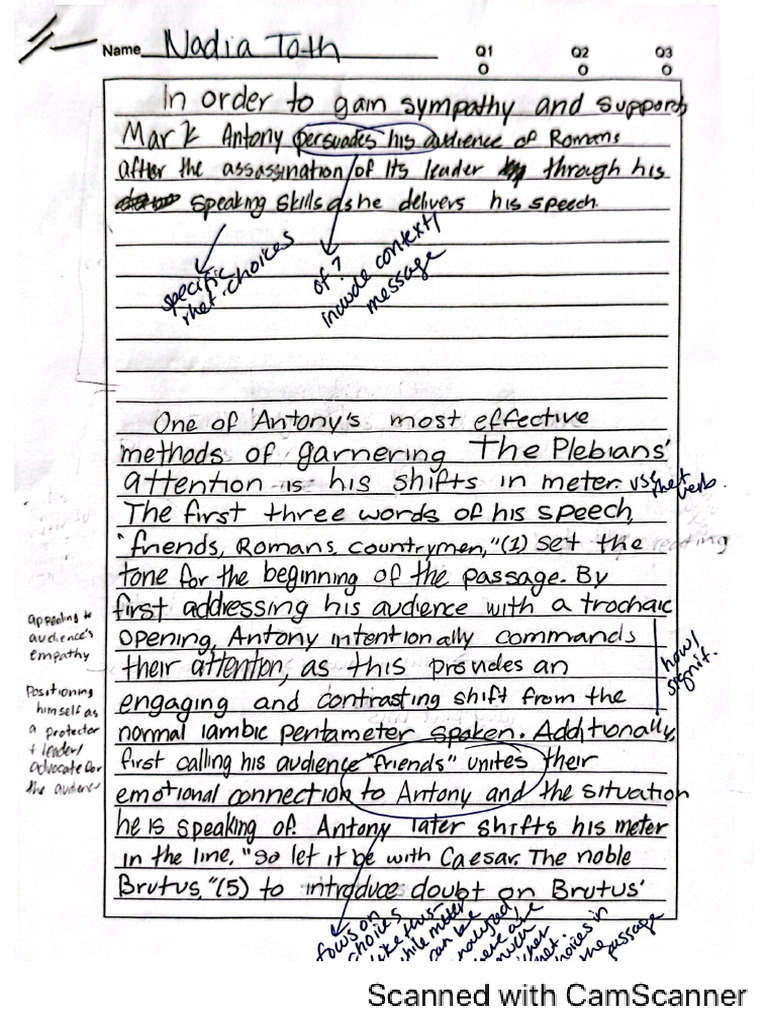 Name Nadia Toth Q1 Q2 Q3
In order to gain sympathy and support,
Mark Antony persuades his audience of Romans
after the assassination of its leader through his
speaking skills as he delivers his speech.
specific
rhet. choices
of?
include context/
message
One of Antony's most effective
methods of garnering The Plebians'
attention is his shifts in meter.
use rhet verb.
The first three words of his speech,
"friends, Romans, countrymen,"(1) set the
tone for the beginning of the passage. By
first addressing his audience with a trochaic
opening, Antony intentionally commands
their attention, as this provides an
engaging and contrasting shift from the
normal iambic pentameter spoken. Additionally,
first calling his audience "friends" unites their
emotional connection to Antony and the situation
he is speaking of. Antony later shifts his meter
in the line, "So let it be with Caesar. The noble
Brutus,"(5) to introduce doubt on Brutus'
how/
signif.
appealing to
audience's
empathy
Positioning
himself as
a protector
+ leader/
advocate for
the audience
focus on
choices
like this
while meter
can be
analyzed
there are
much
other
rhet.
choices in
the passage
Scanned with CamScanner